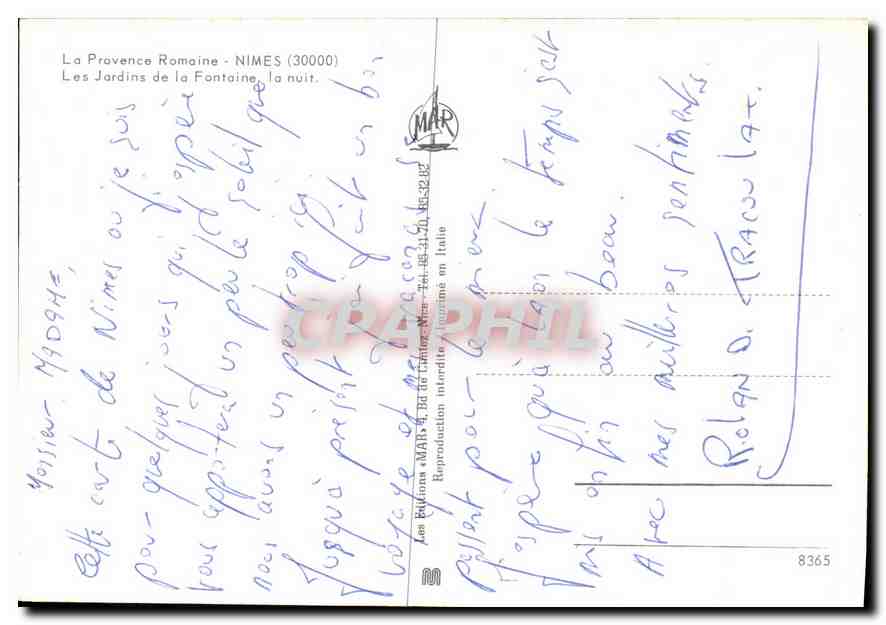 La Provence Romaine - NIMES (30000)
Les Jardins de la Fontaine, la nuit.
MAR
Les Editions «MAR» 4, Bd de Cimiez - Nice - Tél. 85-31-70, 85-32-82
Reproduction interdite / Imprimé en Italie
8365
CPAPHIL
Monsieur - MADAME,
Cette carte de Nîmes où je suis
pour quelques jours qui j'espère
vous apportera un peu le soleil que
nous avons un peu trop ici
Jusqu'à présent j'ai fait un bon
voyage et mes vacances se
passent pour le mieux.
J'espère qu'à Laon le temps s'est
mis enfin au beau.
Avec mes meilleurs sentiments.
Roland TRACOULAT.